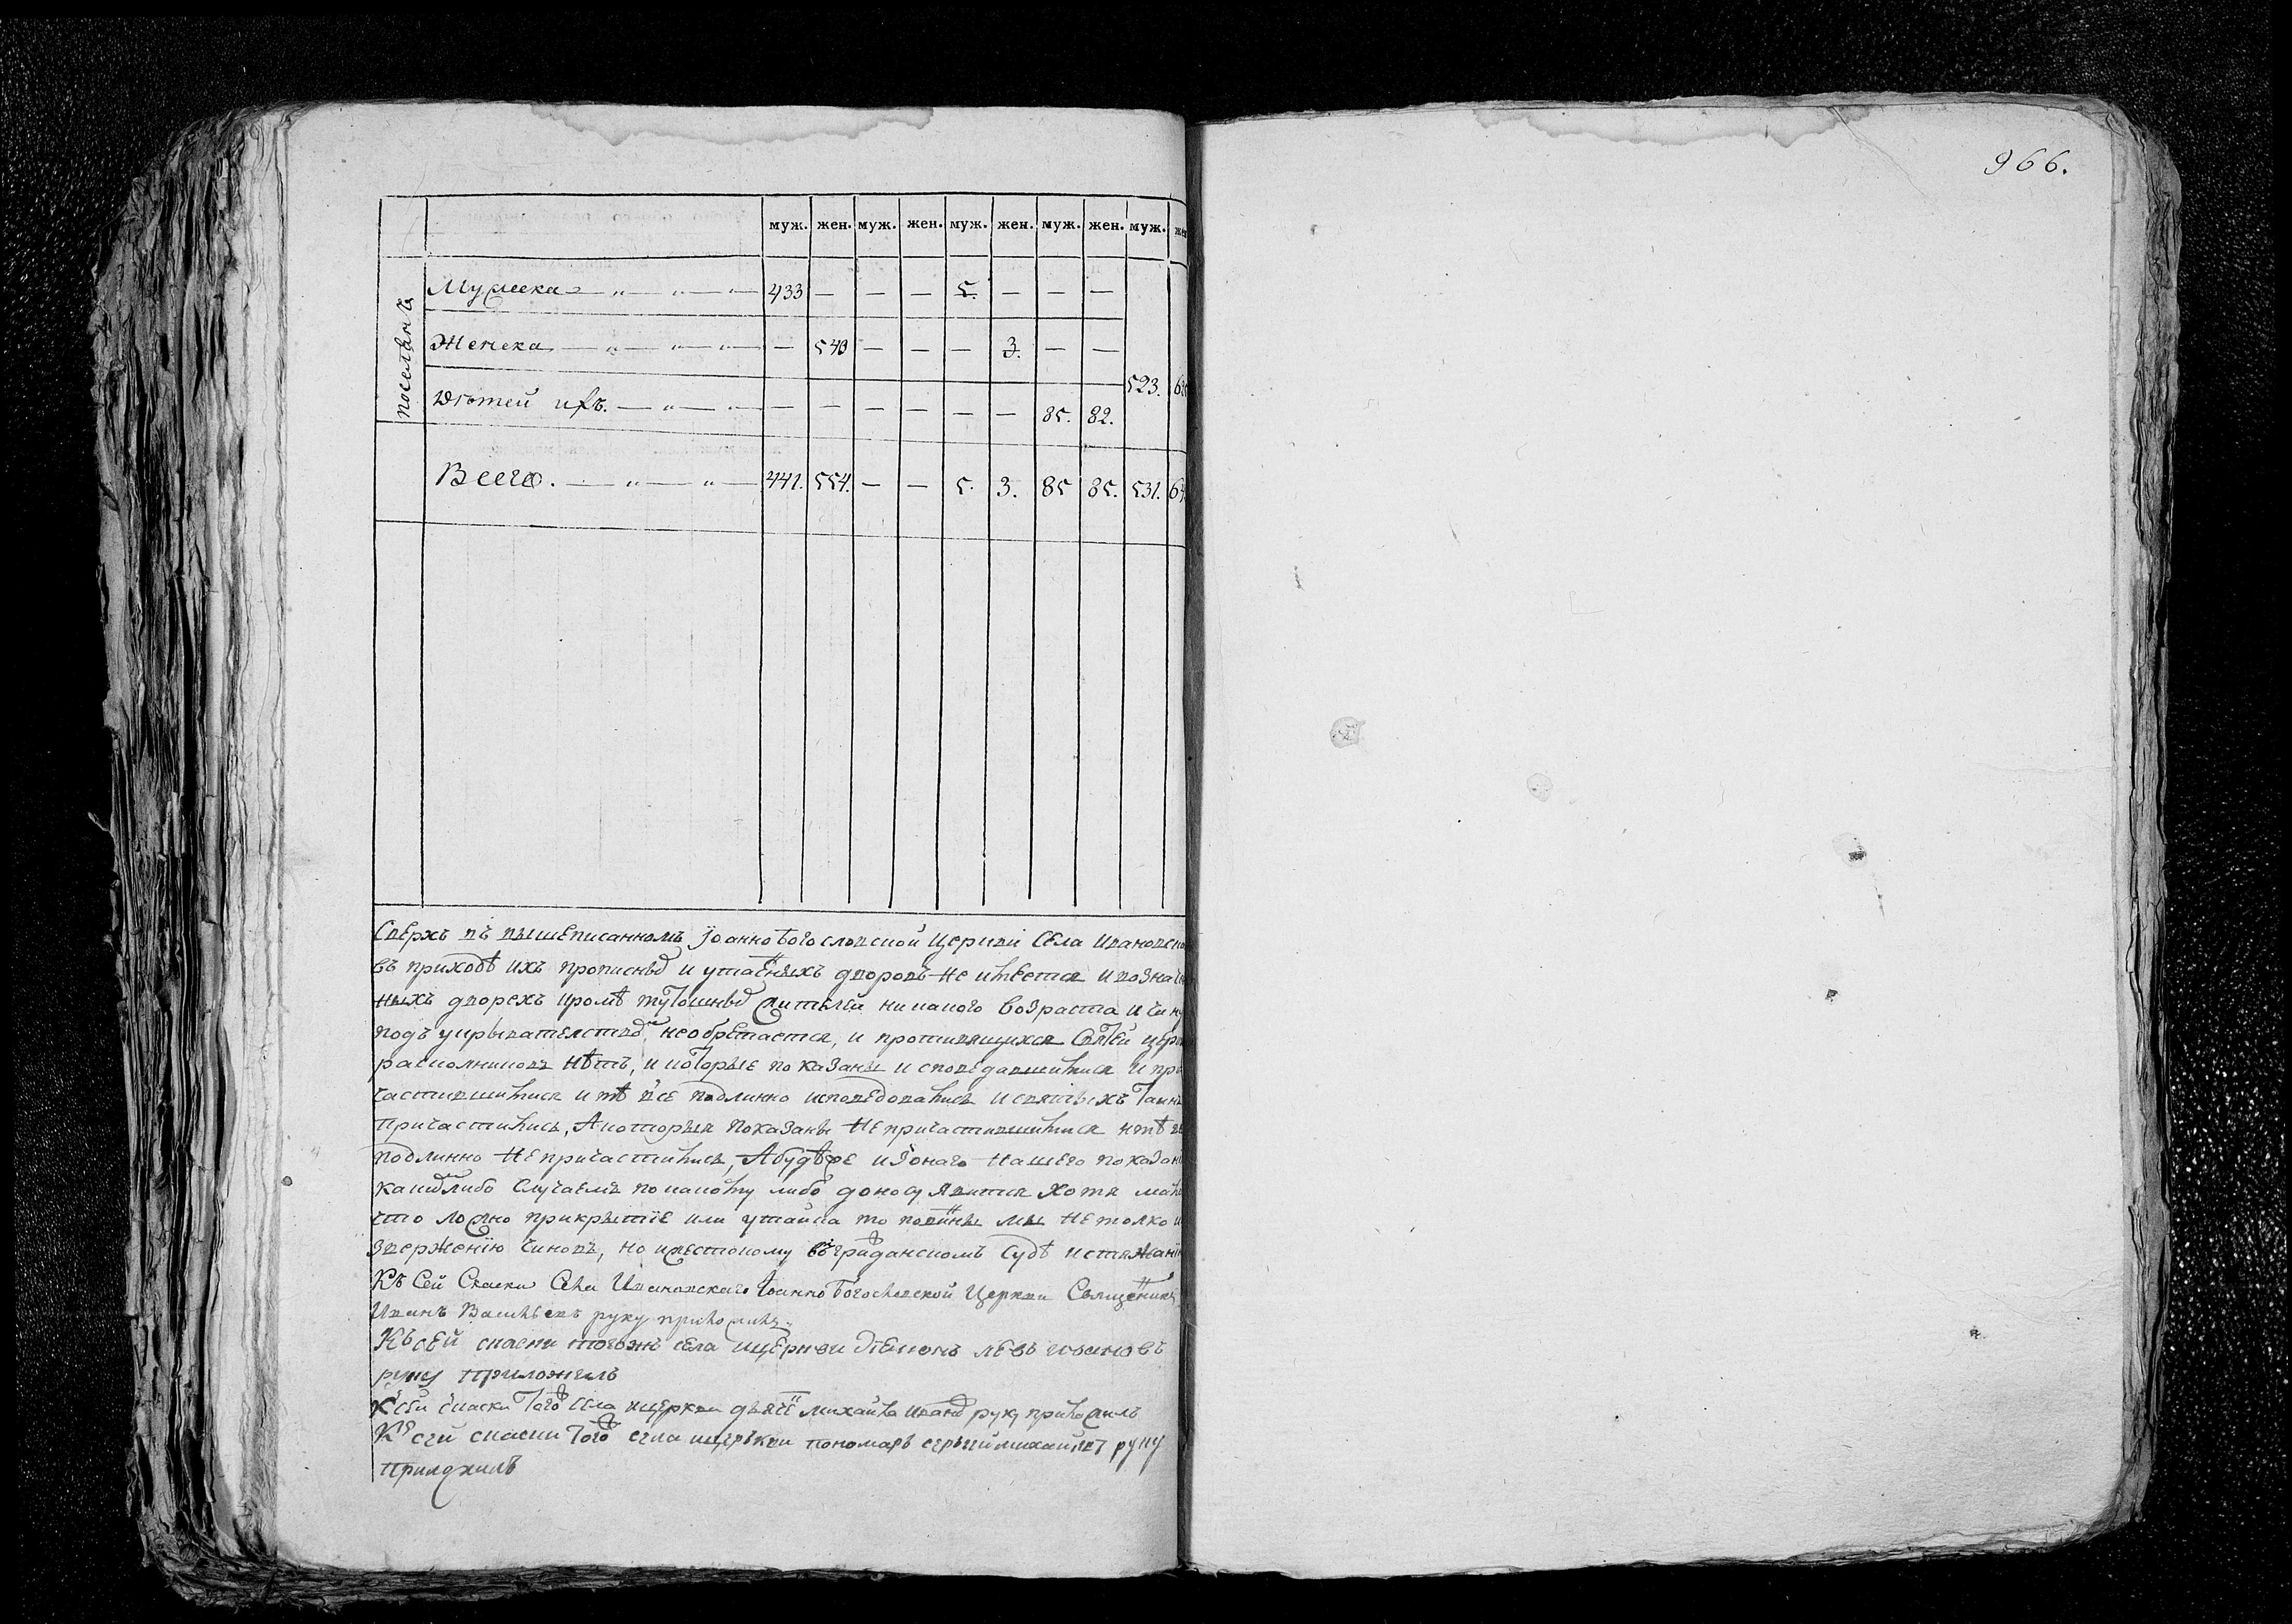 966.
муж. жен. муж. жен. муж. жен. муж. жен. муж. жен
поселянъ
Мужеска — „ — „ — „ — 433 — — — 5. — — —
Женска — „ — „ — „ — — 540 — — — 3. — —
523. 6
Дѣтей ихъ. — „ — „ — — — — — — — 85. 82.
Всего. — „ — „ — 441. 554. — — 5. 3. 85 85. 531. 6
Сверхъ въ вышеписанномъ Iоанно богословской церкви села Ивановско
въ приходѣ ихъ прописныхъ и утаенныхъ дворовъ не имеется и возначе
ныхъ дворехъ кромѣ тутошныхъ жителей никакого возраста и чину
подъ укрывателствомъ необретается, и противящихся святей церк
расколниковъ нѣтъ, и которые показаны исповедавшимися и при
частившимися и тѣ все подлинно исповедовались и святыхъ таинъ
причастились, А которыя показаны не причастившимися и тѣ
подлинно не причастились, А будѣже изонаго нашего показан
каимлибо случаемъ по какому либо доносу явится хотя мал
что ложно прикрытïе или утайка то повинны мы не толко и
звержению чиновъ, но и жестокому въ гражданскомъ судѣ истязанï
Къ сей скаски села Ивановскаго Iоанно Богословской церкви Священникъ
Иванъ Васильевъ руку приложилъ
Къ сей скаски тогожъ села ицеркви дïаконъ левъ ивановъ
руку приложилъ
К сей скаски тогожъ села ицеркви дьячекъ михайла иванов руку приложилъ
Къ сей скаски тогожъ села ицеркви пономарь сергей михайлов руку
приложилъ